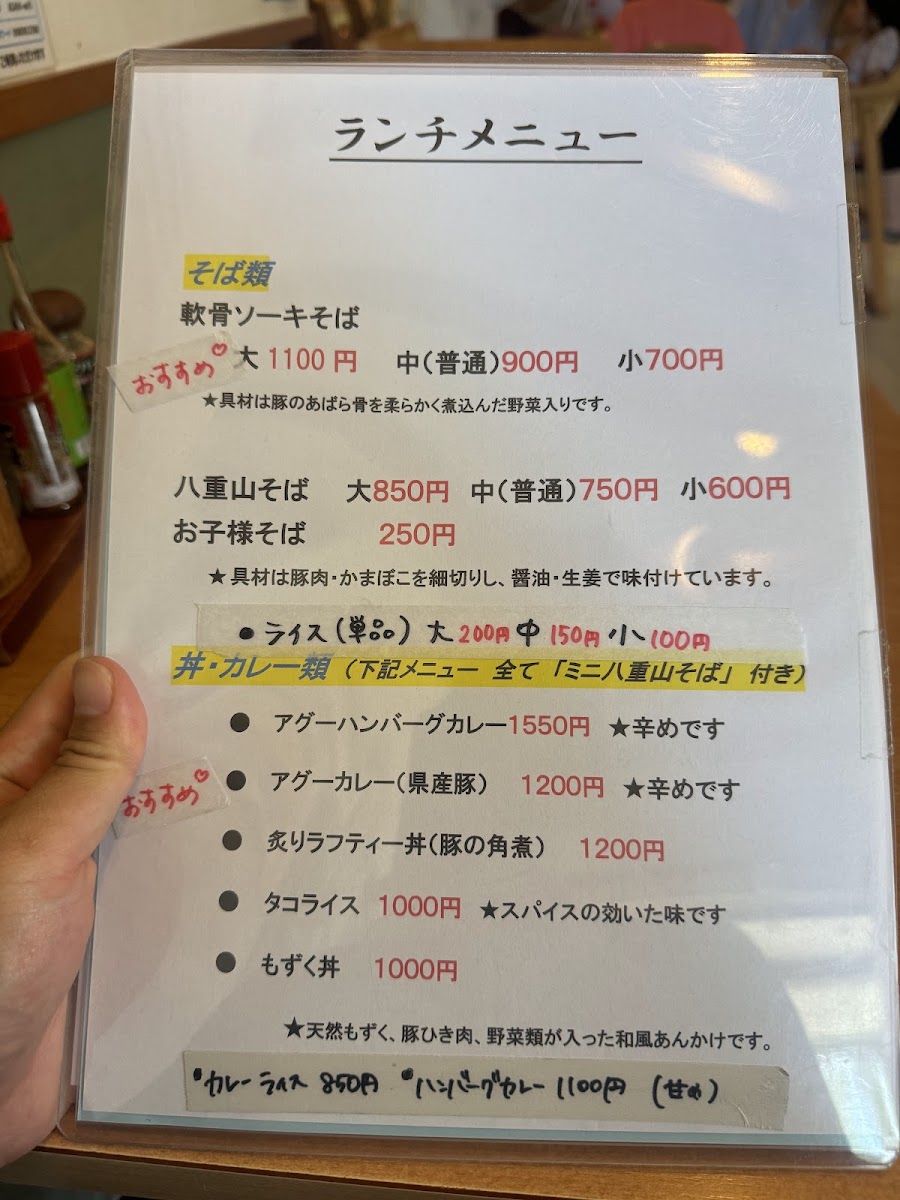 ランチメニュー
そば類
軟骨ソーキそば
おすすめ♡
大1100円 中(普通)900円 小700円
★具材は豚のあばら骨を柔らかく煮込んだ野菜入りです。
八重山そば 大850円 中(普通)750円 小600円
お子様そば 250円
★具材は豚肉・かまぼこを細切りし、醤油・生姜で味付けています。
●ライス(単品) 大200円 中150円 小100円
丼・カレー類 (下記メニュー 全て「ミニ八重山そば」 付き)
● アグーハンバーグカレー1550円 ★辛めです
おすすめ♡
● アグーカレー(県産豚) 1200円 ★辛めです
● 炙りラフティー丼(豚の角煮) 1200円
● タコライス 1000円 ★スパイスの効いた味です
● もずく丼 1000円
★天然もずく、豚ひき肉、野菜類が入った和風あんかけです。
●カレーライス 850円 ●ハンバーグカレー 1100円 (甘め)